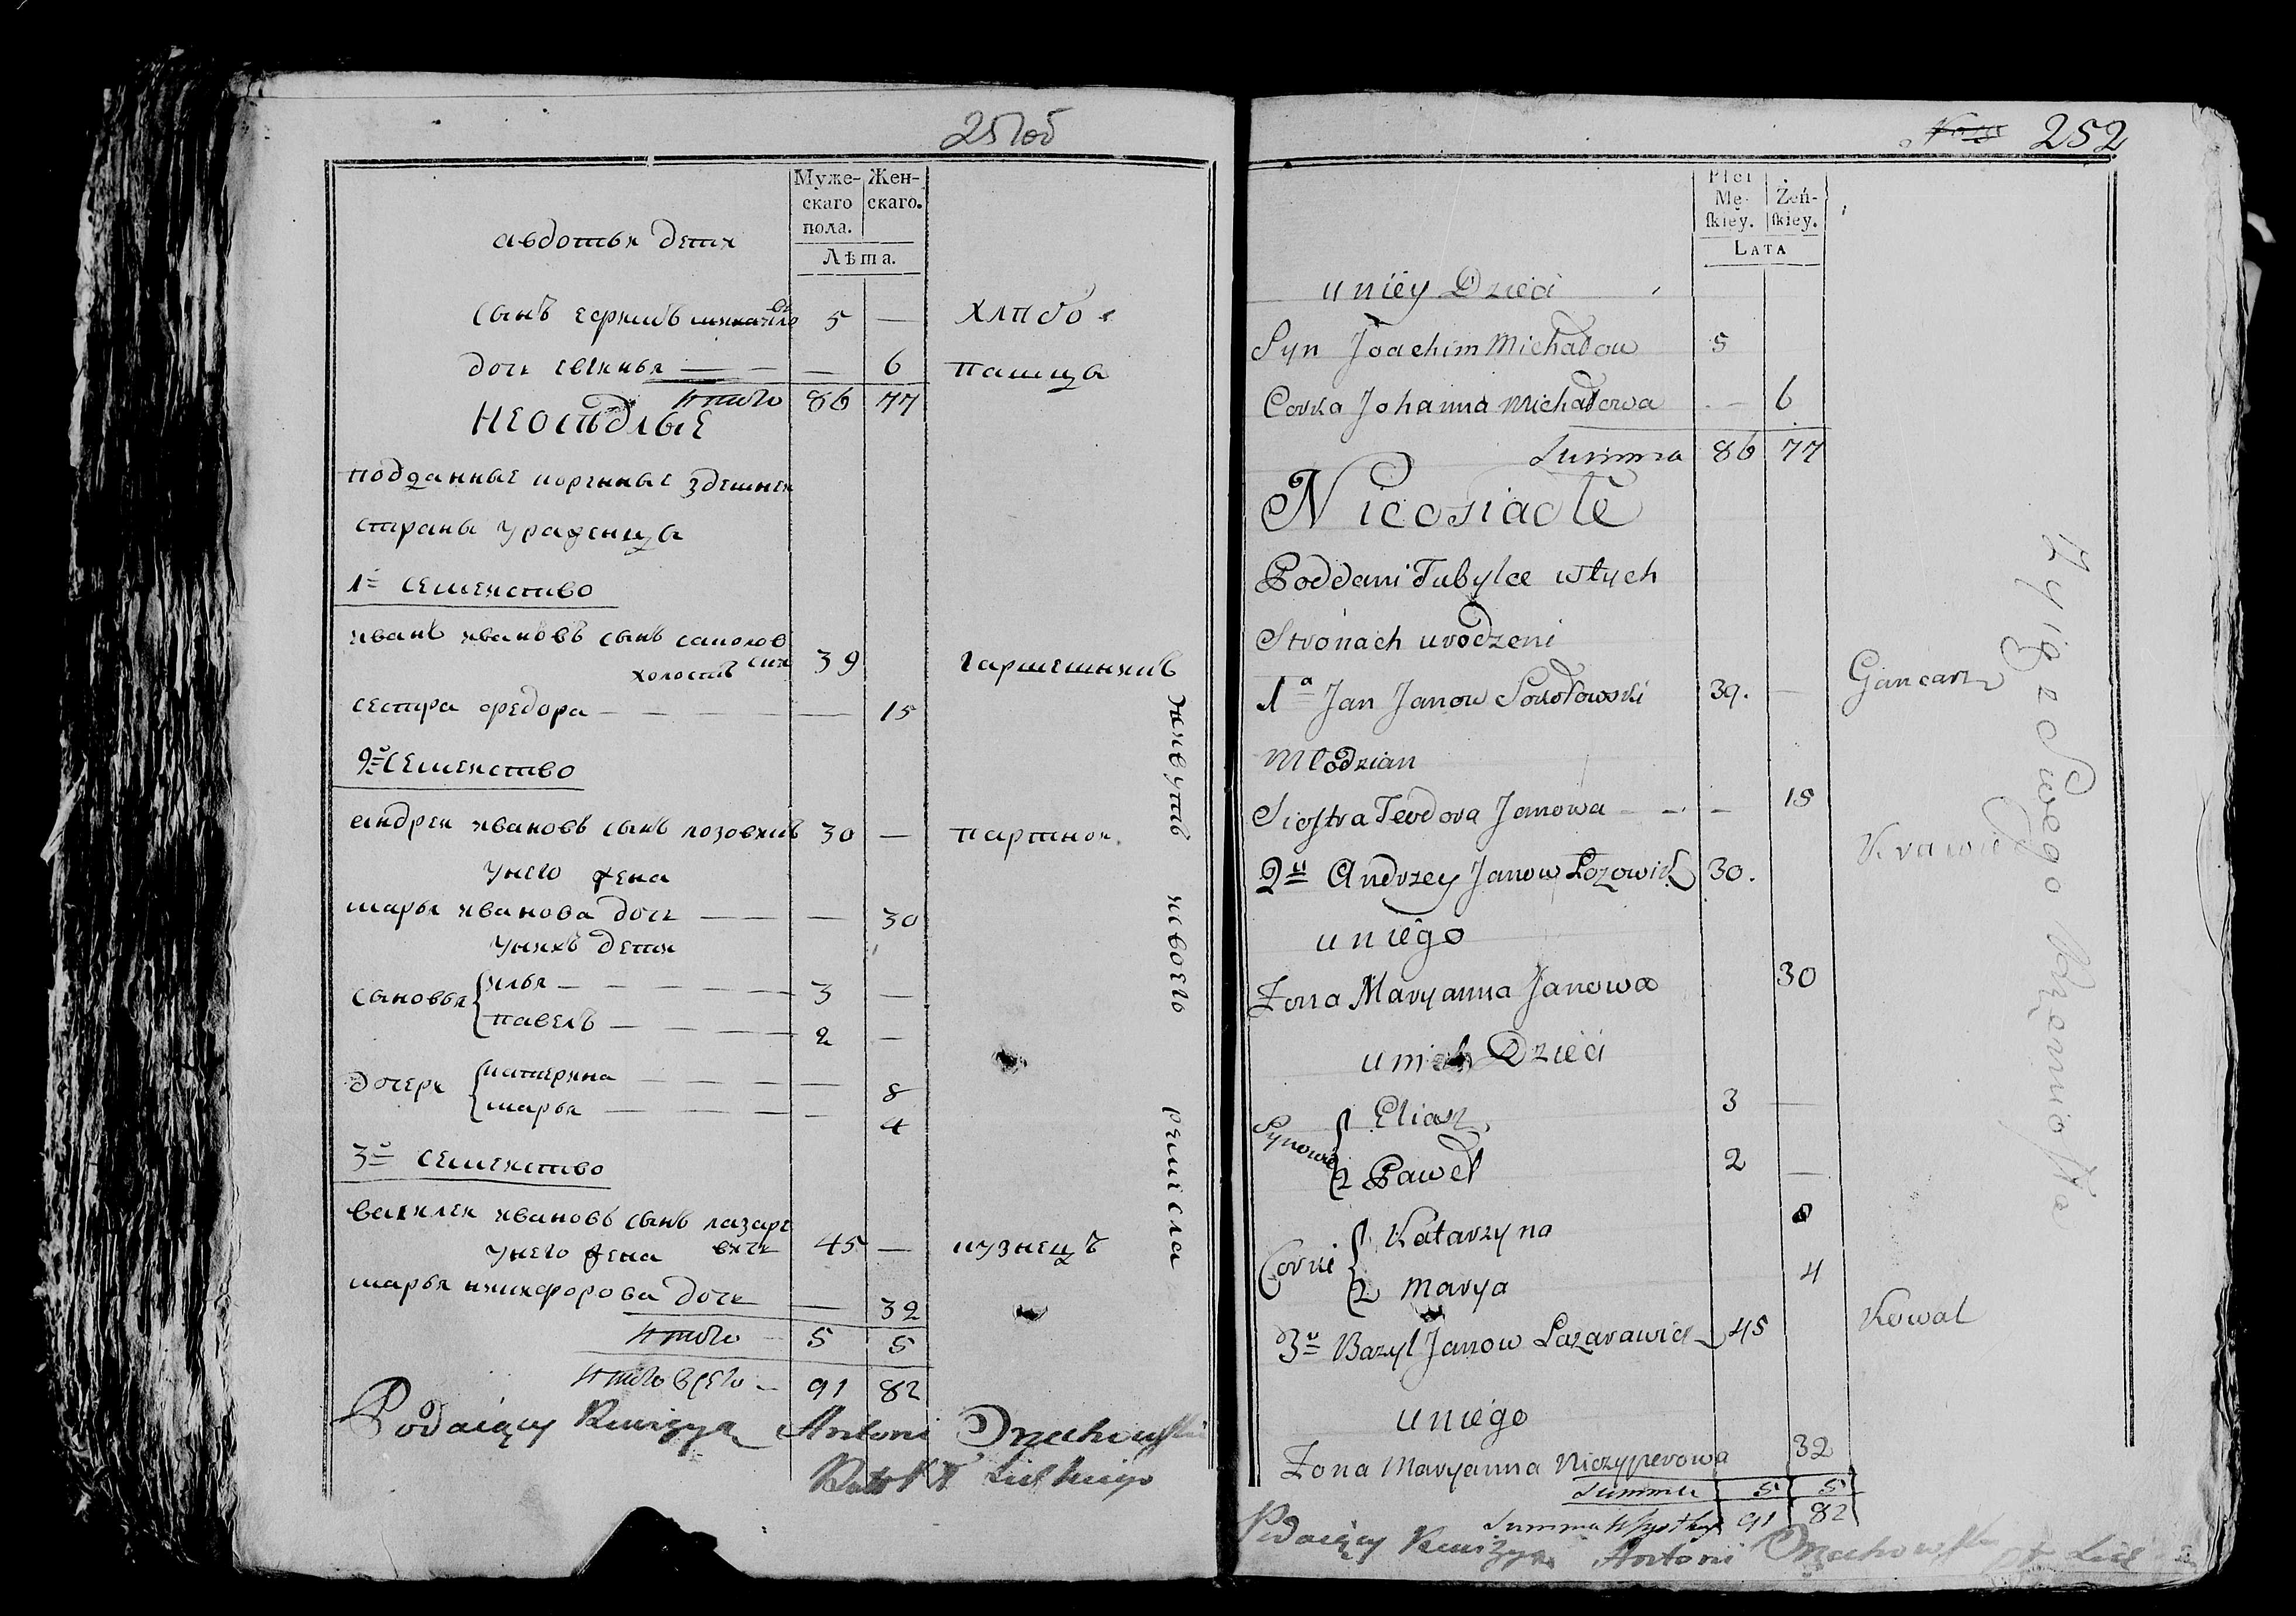 251об
Муже-
скаго
пола.
Жен-
скаго.
Лѣта.
авдотьи дети
сынъ ефимъ михайловъ 5 —
хлѣбо
дочь 6
пашцы
итого 86 77
неосѣдлые
подданные коренные здешней
страны ураженцы
1е семейство
иванъ ивановъ сынъ соколов
ски холостъ 39
гаршешникъ
сестра федора — — — 15
2е семейство
андрей ивановъ сынъ лозовикъ 30 —
партной
унего жена
марья иванова дочь — — — 30
унихъ дети
сыновья илья — — 3 —
павелъ — — 2 —
дочери катерина — — — 8
марья — — — 4
3е семейство
василей ивановъ сынъ лазаре
вичь 45 —
кузнецъ
унего жена
марья никифорова дочь — 32
итого 5 5
итого всего 91 82
живутъ исвоего ремісла
Podaiący Rewizyą Antoni Orzechowski
252
Płci
Mę-
ſkiey.
Żeń-
ſkiey.
LATA
u niey Dzieci
Syn Joachim Michałow 5
Corka Johanna Michałowa — 6
Summa 86 77
Nieosiadłe
Poddani Tubylce wtych
Stronach urodzeni
1a Jan Janow Sokołowski 39. —
Gancarz
Młodzian
Siostra Teodora Janowa — — — 15
2u Andrzey Janow Łozowick 30.
Krawiec
u niego
Żona Maryanna Janowa 30
u nich Dzieci
Synowie Eliasz 3 —
2 Paweł 2 —
Corki Katarzyna 8
2 Marya 4
3u Bazyl Janow Lazarawicz 45
Kowal
u niego
Żona Maryanna Niczyperowa 32
Summa 5 5
Summa Wszystkych 91 82
Żyią ze Swego Rzemiosła
Podaiący Rewizyą Antoni Orzechowski